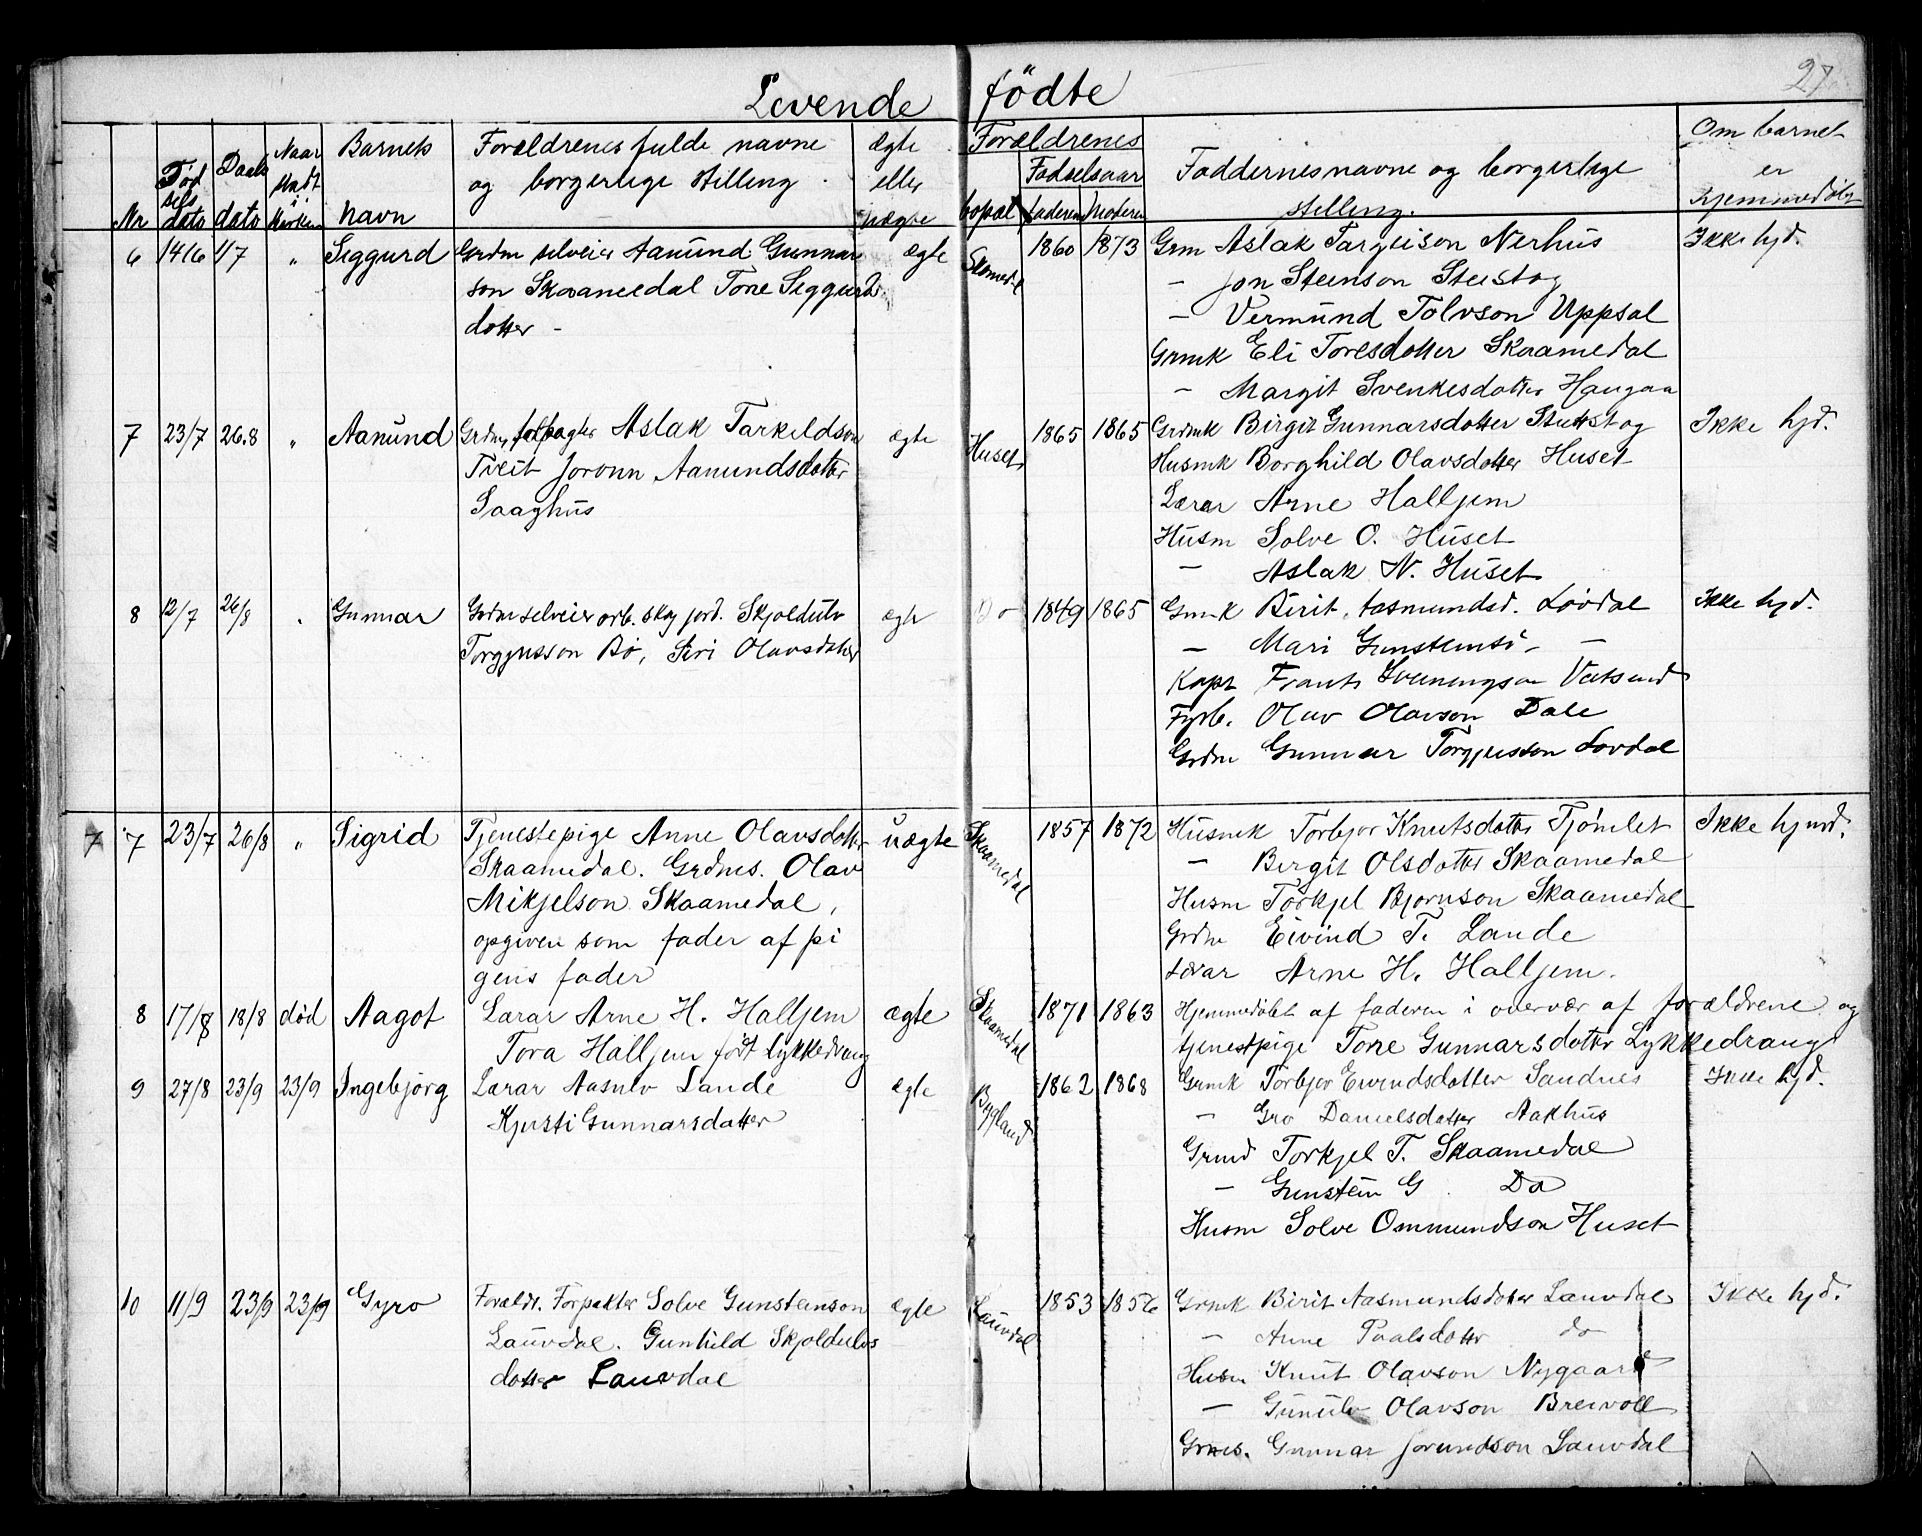 27
Levende födte
Nr
Fød sels dato
Daab dato
Naar stadt i Kirken
Barnets navn
Forældrenes fulde navne og borgerlige stilling
ægte eller uægte
Forældrenes
bopæl
Fødselsaar
faderen
Moderen
Faddernes navne og borgerlige stilling.
Om barnet er hjemmedøbt
6 14/6 1/7 " Siggurd Grdm selveier Aanund Gunnar ægte Skomedal 1860 1873 Grm Aslak Targeison Nerhus Ikke hjd.
son Skaamedal Tone Siggurds - Jon Steinson
dotter - - Vermund Tolvson Uppsal
Grmk Eli Toresdotter Skaamedal
- Margit Svenkesdotter Haugaa
7 23/7 26.8 " Aanund Grdm forpagter Aslak Tarkeldson ægte Huset 1865 1865 Grdmk Birgit Gunnarsdotter Stuttstog Ikke hjd.
Tveit Joronn Aamundsdotter Husmk Borghild Olavsdotter Huset
Saaghus Lærar Arne Halljem
Husm Solve O. Huset
- Aslak N. Huset
8 12/7 26/8 . Gunnar Grdm selveier arb. skog jord. Skjoldulv ægte Do 1849 1865 Grmk Birit Aasmundsd. Lövdal Ikke hjd.
Torgjusson Bö, Siri Olavsdotter - Mari Gunsteinsd -
Kapt Frants Sveinungson Vatsend
Fyrb. Olav Olavson Dale
Grdm Gunnar Torgjusson Lovdal
7 7 23/7 26/8 " Sigrid Tjenestepige Anne Olavsdotter uægte Skaamedal 1857 1872 Husmk Torbjor Knutsdotter Tjömlet Ikke hjmd.
Skaamedal. Grdms. Olav - Bergit Olsdotter Skaamedal
Mikjelson Skaamedal, Husm Torkjel Bjornson Skaamedal
opgiven som fader af pi Grdm Eivind T. Lande
gens fader Lærar Arne H. Halljem.
8 17/8 18/8 död Aagot Lærar Arne H. Halljem ægte Skaamedal 1871 1863 Hjemmedöbt af faderen i overvær af forældrene og
Tora Halljem född Lykkedrang tjenestpige Tone Gunnarsdotter Lykkedrang
9 27/8 23/9 23/9 Ingebjörg Lærar Aasulv Lande ægte Bygland 1862 1868 Grmk Torbjor Eivindsdotter Sandnes Ikke hjd.
Kjersti Gunnarsdotter - Gro Danielsdotter Aakhus
Grmd Torkjel T. Skaamedal
- Gunstein G. Do
Husm Solve Ommundson Huset
10 11/9 23/9 23/9 Gyro Forældr. Forpakter Solve Gunsteinson ægte Lauvdal 1853 1856 Grmk Birit Aasmundsdotter Lauvdal Ikke hjd.
Lauvdal. Gunhild Skjoldulvs - Anne Paalsdotter do
dotter Lauvdal Husm Knut Olavson Nygaard
- Gunulv Olavson Breivoll
Grms. Gunnar Jorundson Lauvdal